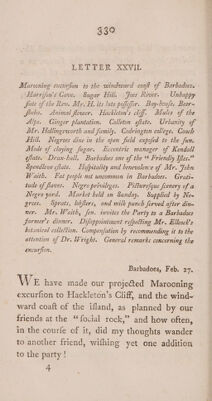 330
LETTER XXVII.
Marooning excursion to the windward coast of Barbadoes.
Harrison's Cave. Sugar Hill. Joes River. Unhappy
fate of the Rev. Mr. H. its late possessor. Bay-house. Bear-
Animal flower. Hackleton's cliff. Mules of the
Alps. Ginger plantation. Colleton estate. Urbanity of
Mr. Hollingsworth and family. Codrington college. Coach
Hill. Negroes dine in the open field exposed to the sun.
Mode of claying sugar. Eccentric manager of Kendall
estate. Drax-hall. Barbadoes one of the "Friendly Isles."
Spendlove estate. Hospitality and benevolence of Mr. John
Waith. Fat people not uncommon in Barbadoes. Grati-
tude of slaves. Negro privileges. Picturesque scenery of a
Negro yard. Market held on Sunday. Supplied by Ne-
groes. Sprats, lobsters, and milk punch served after din-
ner. Mr. Waith, jun. invites the Party to a Barbadoes
farmer's dinner. Disappointment respecting Mr. Ellcock's
botanical collection. Compensation by recommending it to the
attention of Dr. Wright. General remarks concerning the
excursion.
Barbadoes, Feb. 27.
WE have made our projected Marooning
excursion to Hackleton's Cliff, and the wind-
ward coast of the island, as planned by our
friends at the "social rock," and how often,
in the course of it, did my thoughts wander
to another friend, wishing yet one addition
to the party!
4